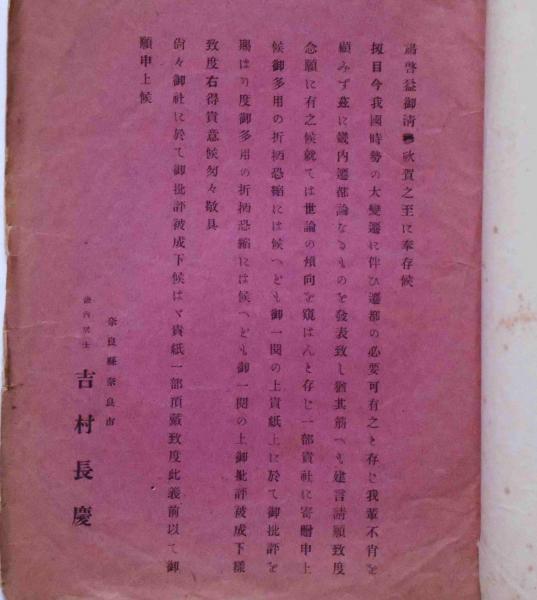 肅啓益御淸 欣賀之至に奉存候
扨目今我國時勢の大變遷に伴ひ遷都の必要可有之と存じ我輩不肖を
顧みず茲に畿内遷都論なるものを發表致し猶其筋へも建言請願致度
念願に有之候就ては世論の傾向を窺はんと存じ一部貴社に寄贈申上
候御多用の折柄恐縮には候へども御一閲の上貴紙上に於て御批評を
賜はり度御多用の折柄恐縮には候へども御一閲の上御批評被成下樣
致度右得貴意候匆々敬具
尙々御社に於て御批評被成下候はゞ貴紙一部頂戴致度此義前以て御
願申上候
奈良縣奈良市
吉村長慶